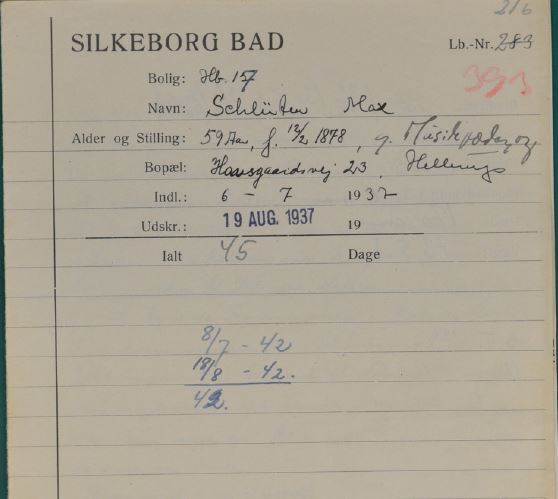 216
SILKEBORG BAD
Lb.-Nr. 283
393
Bolig: Hb. 157
Navn: Schlüter Max
Alder og Stilling: 59 Aar, f. 12/2 1878, g. Musikpædagog
Bopæl: Hansgaardsvej 23, Hellerup
Indl.: 6 - 7 1937
Udskr.: 19 AUG. 1937 19
Ialt 45 Dage
8/7 - 42
18/8 - 42.
42.